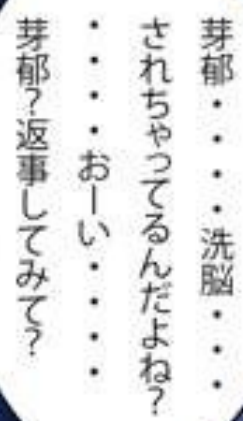 芽郁・・・・洗脳・・・
されちゃってるんだよね？
・・・・おーい・・・・
芽郁？返事してみて？